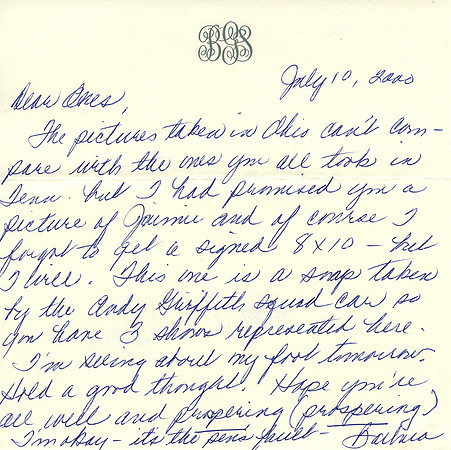 BGS
July 10, 2000
Dear Ones,
The pictures taken in Ohio can't com-
pare with the ones you all took in
Tenn. but I had promised you a
picture of Jaimie and of course I
forgot to get a signed 8x10 – but
I will. This one is a snap taken
by the Andy Griffith squad car so
you have 3 shows represented here.
I'm seeing about my foot tomorrow.
Hold a good thought. Hope you're
all well and propering (prospering)
I'm okay – it's the pens fault – Barbara